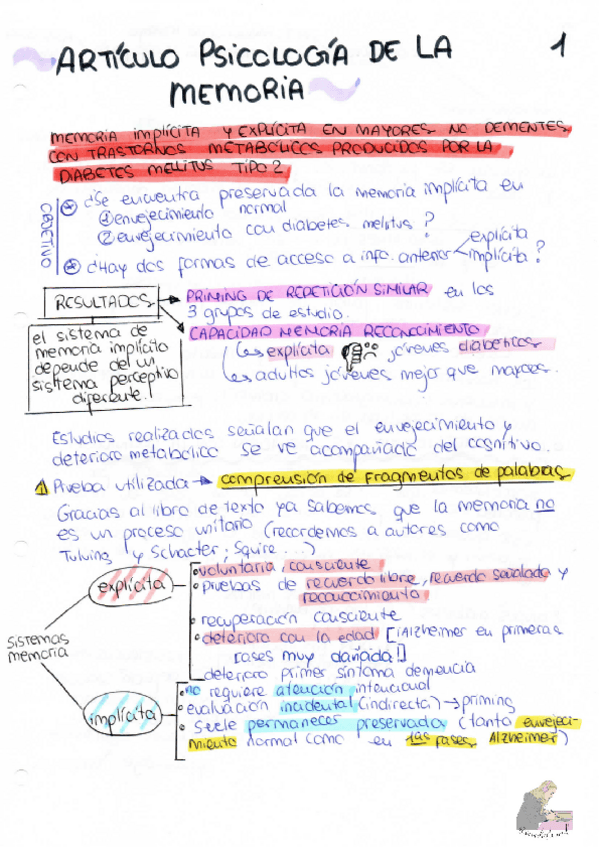 ARTÍCULO PSICOLOGÍA DE LA 1
MEMORIA
MEMORIA IMPLÍCITA Y EXPLÍCITA EN MAYORES NO DEMENTES
CON TRASTORNOS METABÓLICOS PRODUCIDOS POR LA
DIABETES MELLITUS TIPO 2
OBJETIVO
¿Se encuentra preservada la memoria implícita en
① envejecimiento normal
② envejecimiento con diabetes melitus?
¿Hay dos formas de acceso a info. anterior explícita
implícita?
RESULTADOS → PRIMING DE REPETICIÓN SIMILAR en los
3 grupos de estudio.
CAPACIDAD MEMORIA RECONOCIMIENTO
↳ explícita jóvenes diabéticos
↳ adultos jóvenes mejor que mayores.
el sistema de
memoria implícito
depende de un
sisttema perceptivo
diferente.
Estudios realizados señalan que el envejecimiento y
deterioro metabólico se ve acompañado del cognitivo.
Prueba utilizada → comprensión de fragmentos de palabras
Gracias al libro de texto ya sabemos que la memoria no
es un proceso unitario (recordemos a autores como
Tulving y Schacter; Squire ...)
sistemas
memoria
explícita
voluntaria, consciente
pruebas de recuerdo libre, recuerdo señalado y
reconocimiento
recuperación consciente
deterioro con la edad [¡Alzheimer en primeras
fases muy dañada!]
deterioro primer síntoma demencia
implícita
no requiere atención intencional
evaluación incidental (indirecta) → priming
suele permanecer preservada (tanto envejeci-
miento normal como en 1as fases Alzheimer)